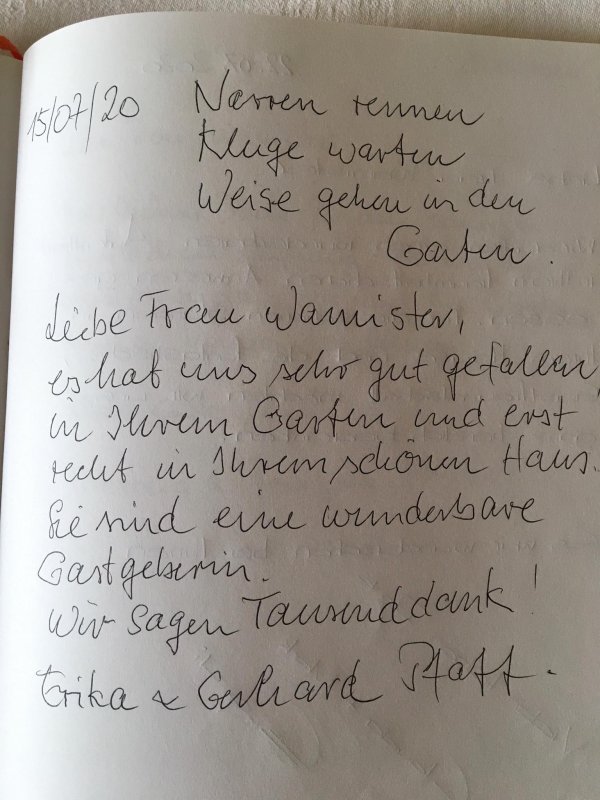 15/07/20 Narren rennen
Kluge warten
Weise gehen in den
Garten.
Liebe Frau Wannister,
es hat uns sehr gut gefallen
in Ihrem Garten und erst
recht in Ihrem schönen Haus.
Sie sind eine wunderbare
Gastgeberin.
Wir sagen Tausenddank!
Erika & Gerhard Pfaff.